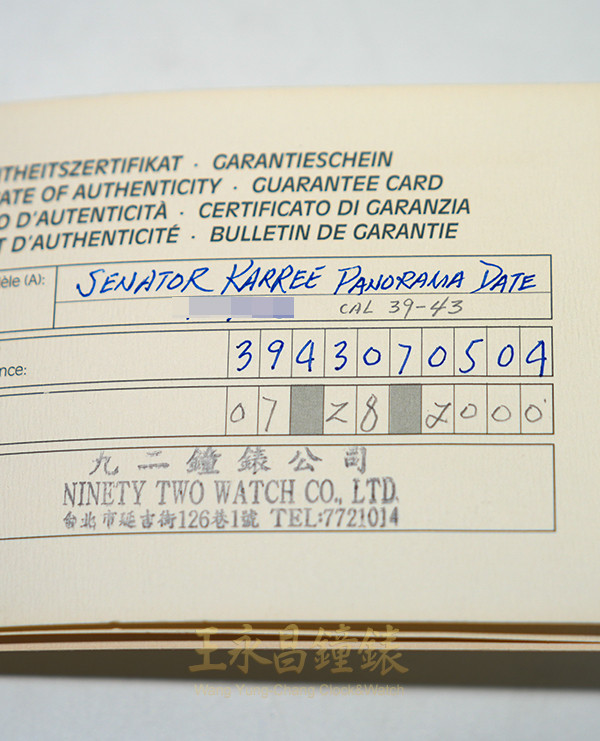 THEITSZERTIFIKAT · GARANTIESCHEIN
ATE OF AUTHENTICITY · GUARANTEE CARD
O D'AUTENTICITÀ · CERTIFICATO DI GARANZIA
T D'AUTHENTICITÉ · BULLETIN DE GARANTIE
èle (A): SENATOR KARREÉ PANORAMA DATE
CAL 39-43
nce: 3943070504
07 28 2000
九二鐘錶公司
NINETY TWO WATCH CO., LTD.
台北市延吉街126巷1號 TEL:7721014
王永昌鐘錶
Wang Yong Chang Clock&Watch